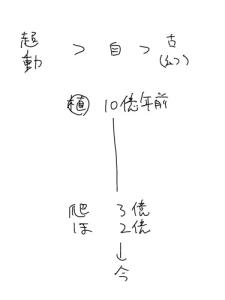 起動 > 自 > 古
植 10億年前
爬 3億
ほ 2億
↓
今